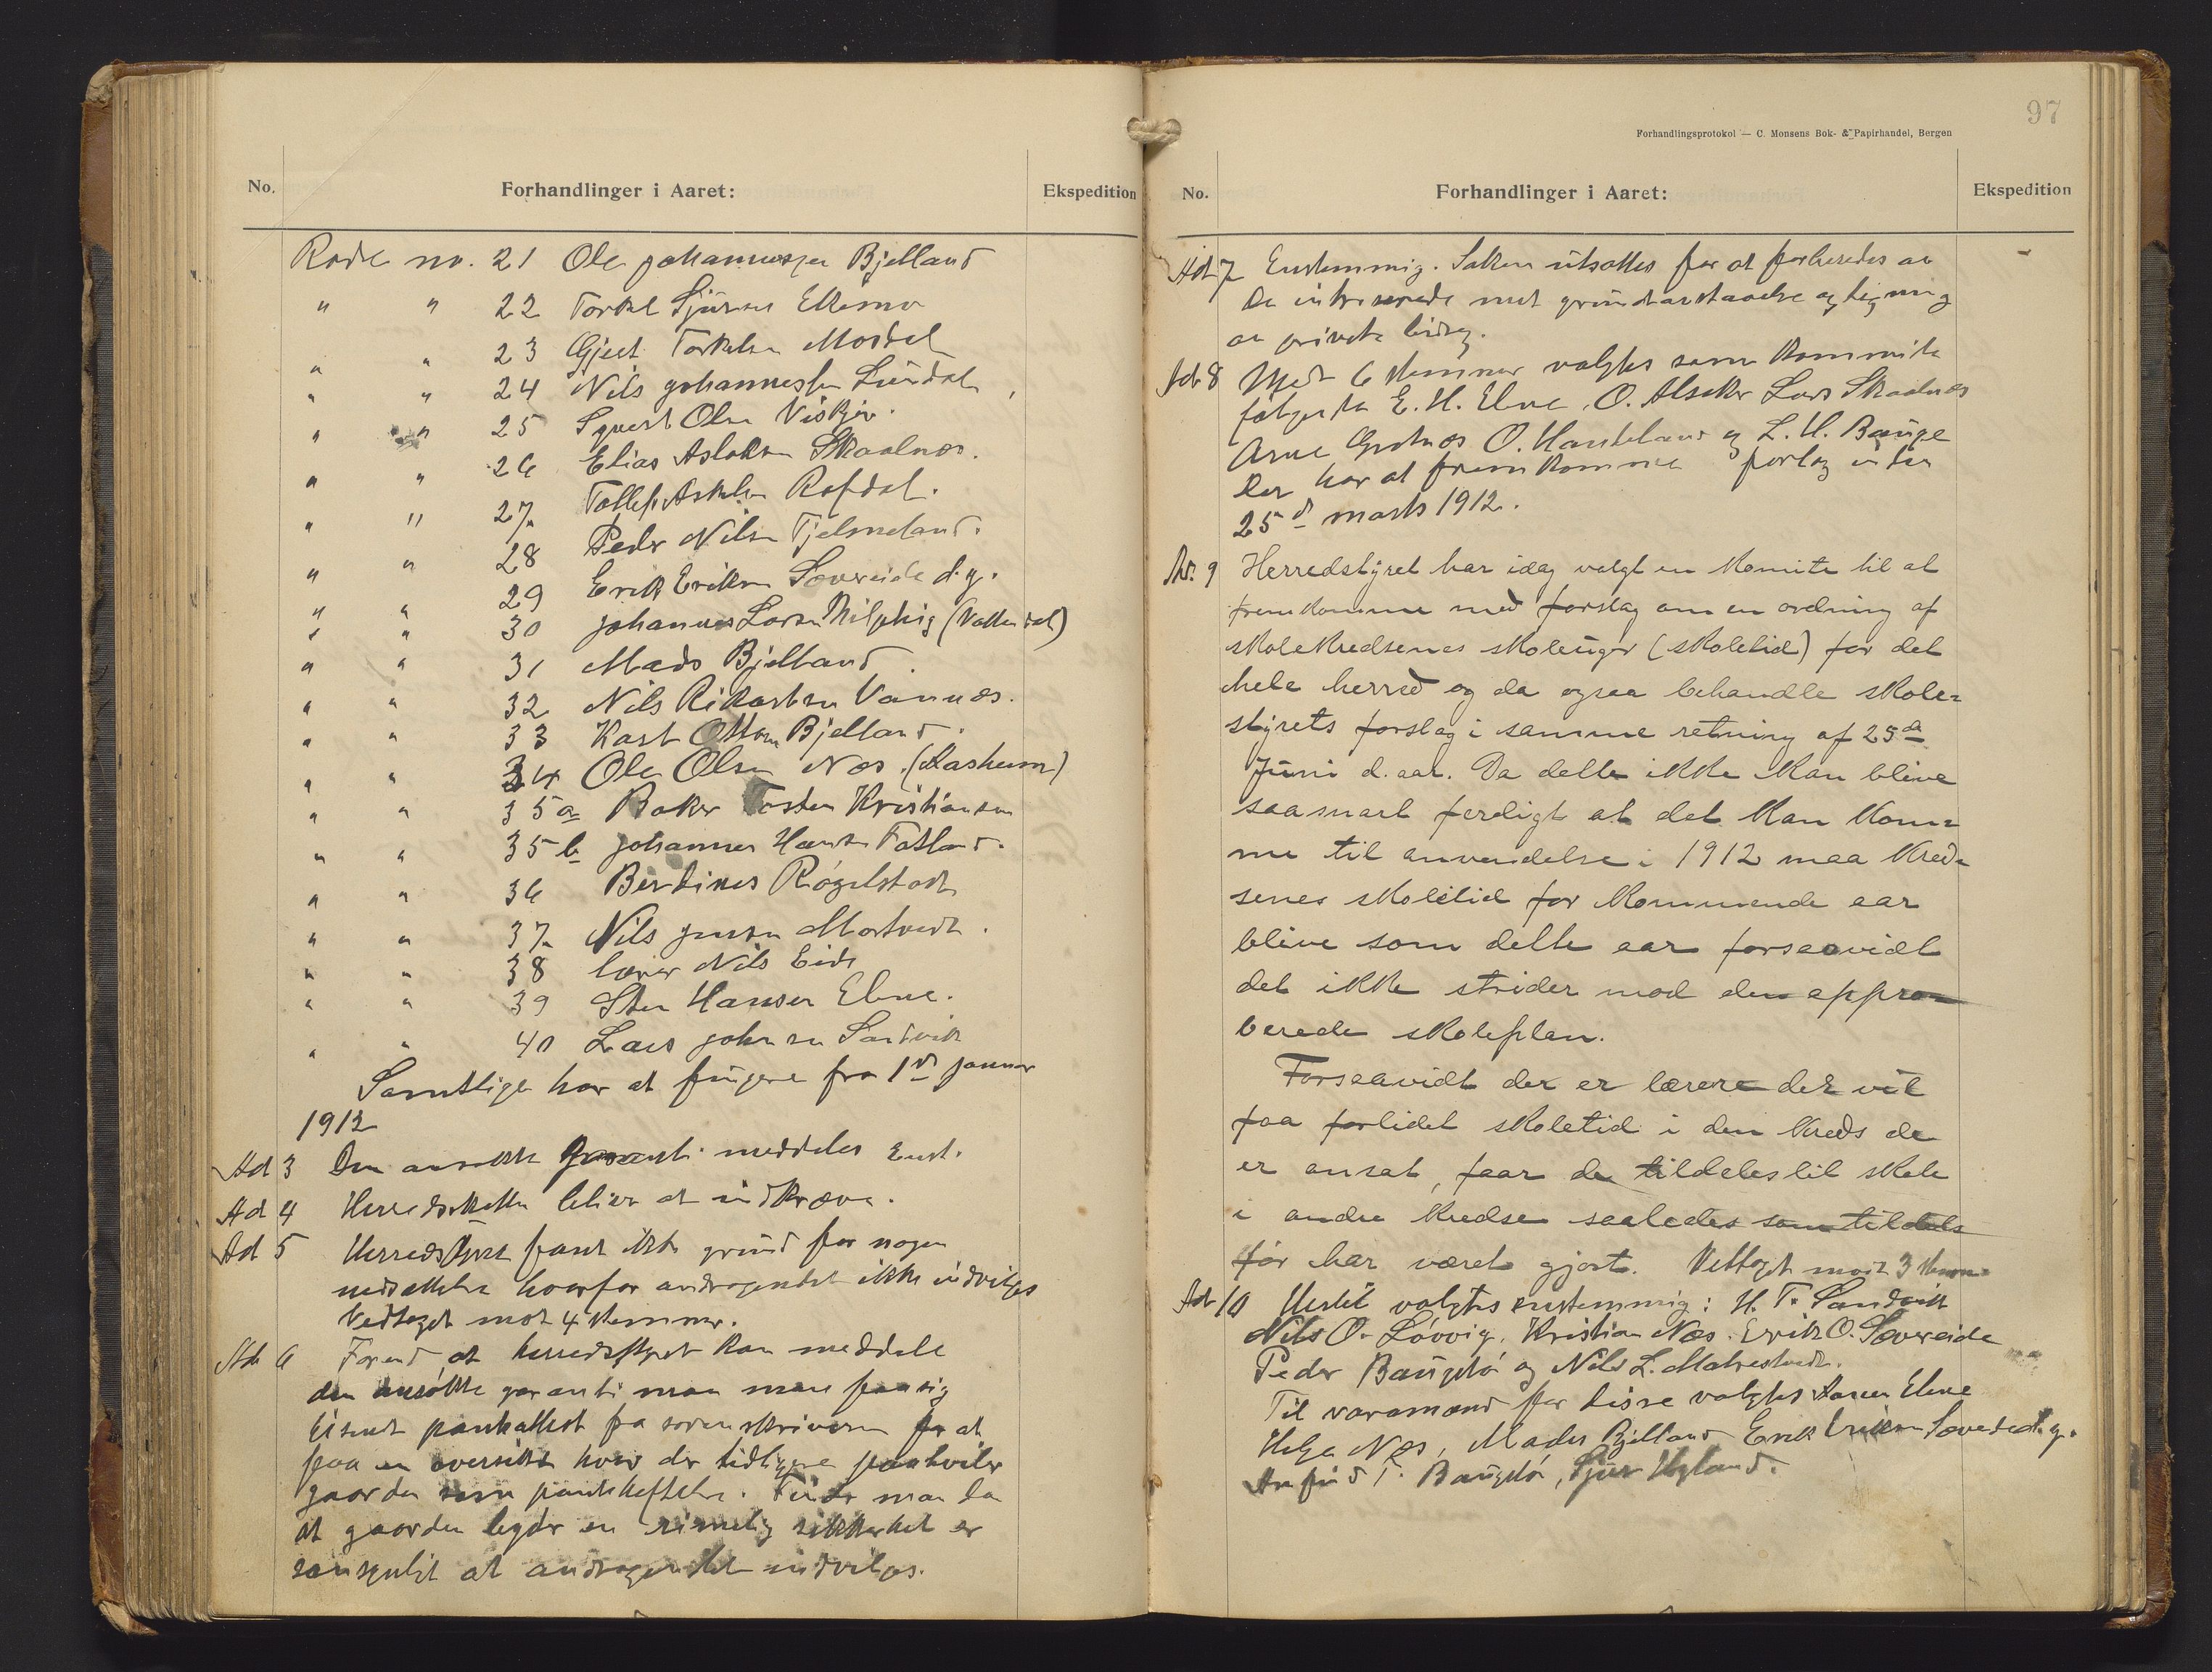 No. Forhandlinger i Aaret: Ekspedition
Rode no. 21 Ole Johannessen Bjelland
" " 22 Torkel Sjursen Ettemo
" " 23 Gjert Torkelsen Mosdal
" " 24 Nils Johannessen Lundal
" " 25 Sjvert Olsen
" " 26 Elias Aslaksen Skaalnæs.
" " 27 Rafdal.
" " 28 Peder Nilsen Tjelmeland.
" " 29 Erik Eriksen Søvreide d.y.
" " 30 Johannes Larsen (Vattendal)
" " 31 Mads Bjelland
" " 32 Nils Rikartsen Vannes.
" " 33 Karl Ottosen Bjelland.
" " 34 Ole Olsen Næs. (Aasheim)
" " 35 a Baker Tosten Kristiansen
" " 35 b Johannes Hansen Fatland.
" " 36 Berdines Røgelstad
" " 37 Nils Jensen Mortvedt.
" " 38 lærer Nils Eide
" " 39 Sten Hansen Elne.
" " 40 Lars Johnsen Sandvik
Samtlige har at fungere fra 1ste januar
1912
Ad 3 Den ansøkte garanti meddeles Enst.
Ad 4 Herredsskatten blir at indkræve.
Ad 5 Herredstyret fant ikke grund for nogen
nedsættelse hvorfor andragendet ikke indvilges
Vedtaget mot 4 stemmer.
Ad 6 Forend at herredsstyret kan meddele
den ansøkte garanti maa man faa sig
tilsendt panteattest fra sorenskriveren for at
faa en oversikt hvad der tidligere paahviler
gaarden som pantheftelse. Finder man da
at gaarden byder en rimelig sikkerhet er
at andragendet indvilges.
97
Forhandlingsprotokol — C. Monsens Bok- & Papirhandel, Bergen
No. Forhandlinger i Aaret: Ekspedition
Ad 7 Enstemmig. Saken utsættes for at forberedes av
de intreserede met grundavstaaelse og tegning
av private bidrag.
Ad 8 Med 6 stemmer valgtes som kommite
følgende E. H. Elne, O. Alsaker Lars Skaalnes
Arne Grotnæs O. Handeland og L. H. Bauge
Der har at fremkomme forlag inden
25de marts 1912.
Nr. 9 Herredstyret har idag valgt en komite til at
fremkomme med forslag om en ordning af
skolekredsenes skoleuger (skoletid) for det
hele herred og da ogsaa behandle skole-
styrets forslag i samme retning af 25de
Juni d. aar. Da dette ikke kan blive
saasnart ferdigt at det kan kom-
me til anvendelse i 1912 maa kred-
senes skoletid for kommende aar
blive som dette aar forsaavidt
det ikke strider mod den appro-
berede skoleplan.
Forsaavidt der er lærere der vil
faa forlidet skoletid i den kreds de
er ansat, faar de tildeles til skole
i andre kredse saaledes som tildels
før har været gjort. Vettaget mot 3 stem.
Ad 10 Hertil valgtes enstemmig: H. T. Sandvik
Nils O. Løvvig. Kristian Næs. Erik O. Søvreide
Peder Baugstø og Nils L. Matrestvedt.
Til varamænd for disse valgtes Hansen Elne
Helge Næs, Mades Bjelland Erik Eriksen Søvreide d.y.
Arnfind T. Baugstø, Sjur Ugland.